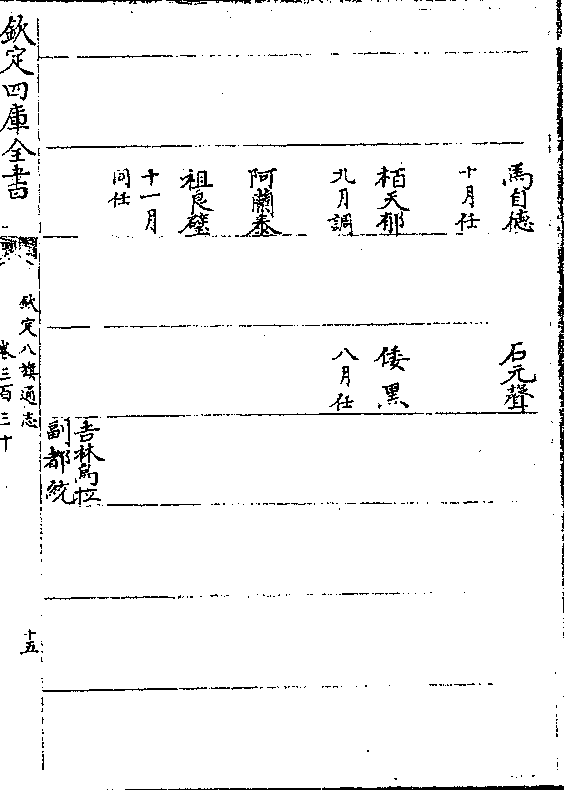 馬自徳
十月任
栢天郁
九月調
阿蘭泰
祖良璧
十一月
同任
石元聲
倭黑
八月任
吉林烏拉
副都統
欽定四庫全書
欽定八旗通志
卷三百三十
十五